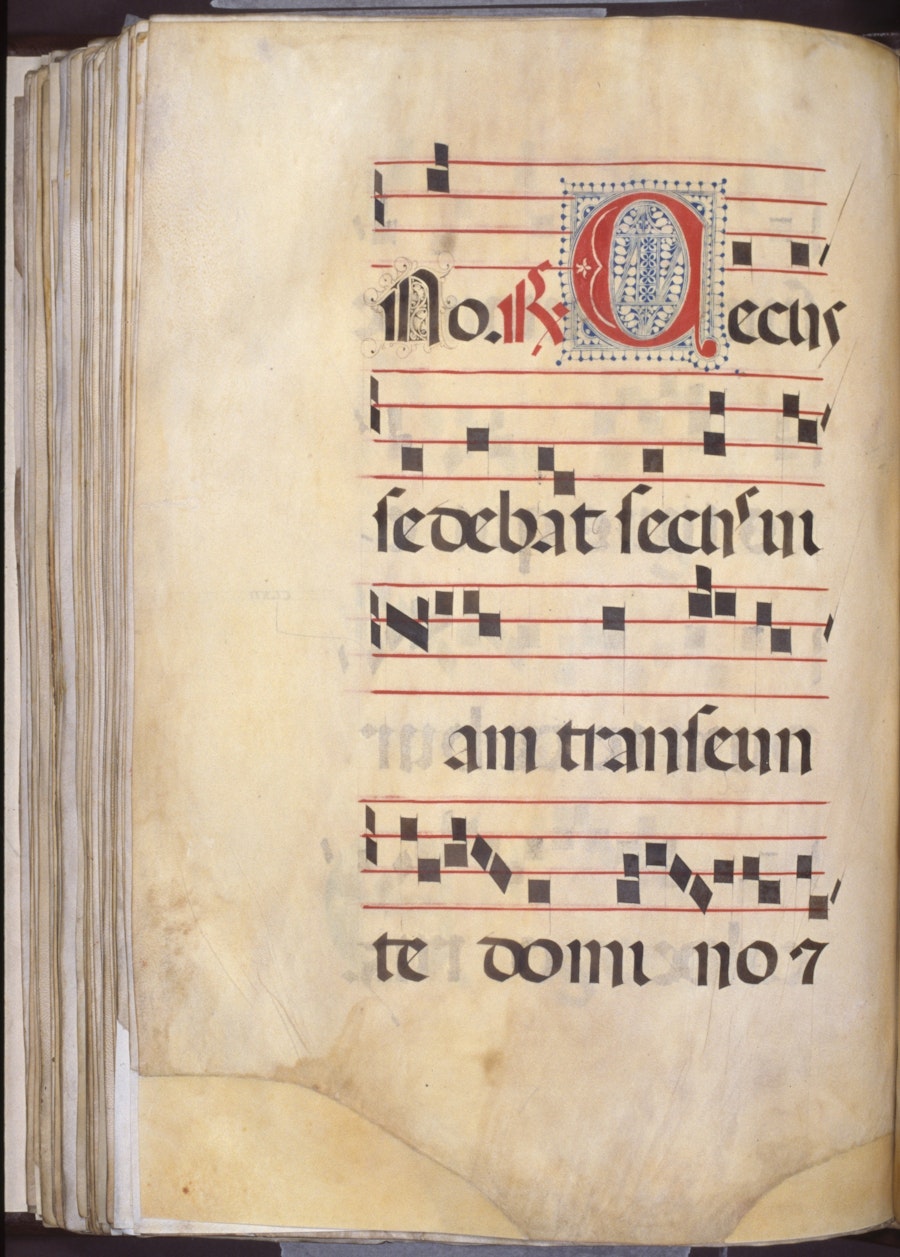 No. ℟. Cecus
ſedebat ſecus ui
am tranſeun
te domi no ⁊